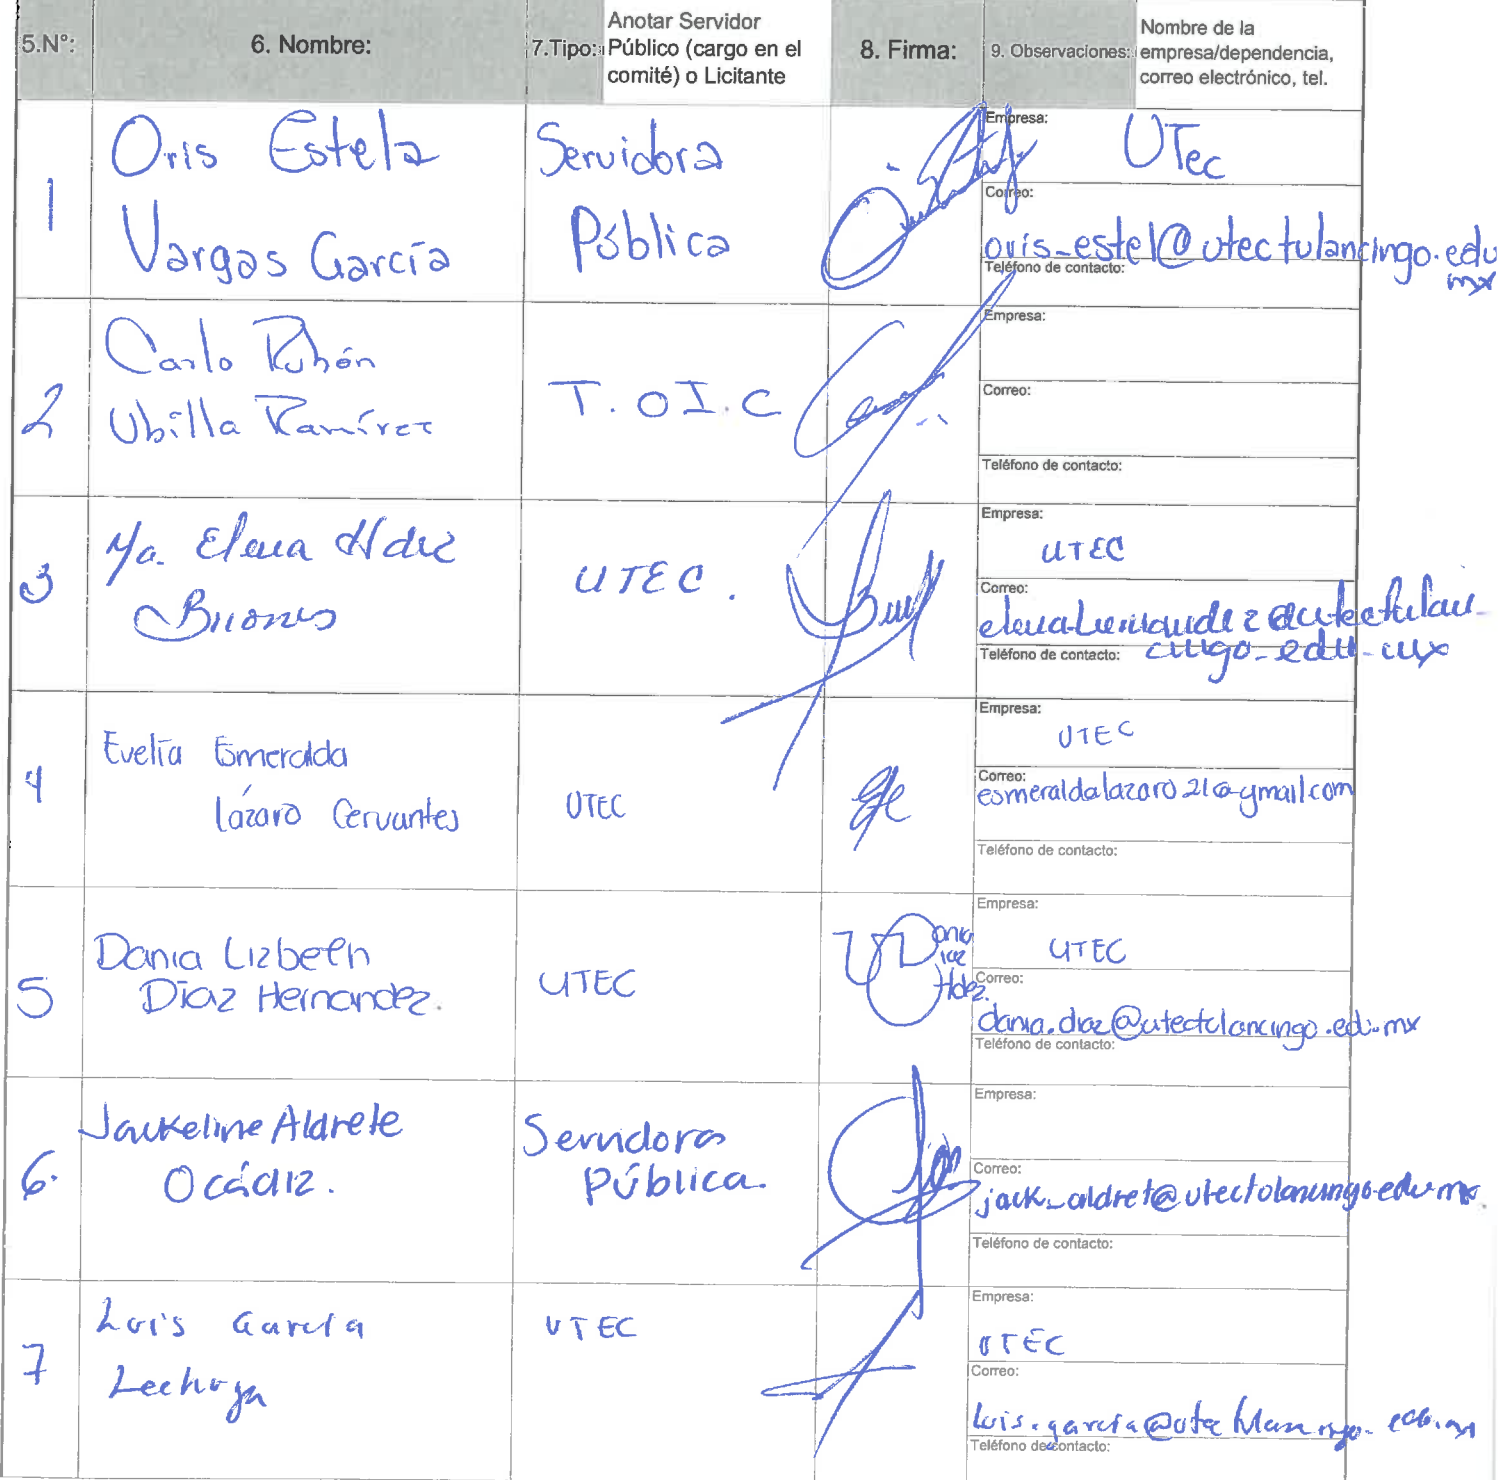 5.N°:
6. Nombre:
7.Tipo:
Anotar Servidor
Público (cargo en el
comité) o Licitante
8. Firma:
9. Observaciones:
Nombre de la
empresa/dependencia,
correo electrónico, tel.
1
Oris Estela
Vargas García
Servidora
Pública
Empresa: UTec
Correo:
oris_estel@utectulancingo.edu
mx
Teléfono de contacto:
2
Carlo Rubén
Ubilla Ramírez
T.OI.C
Empresa:
Correo:
Teléfono de contacto:
3
Ma. Elena Hdez
Briones
UTEC.
Empresa:
UTEC
Correo:
elena.hernandez@utectulan-
Teléfono de contacto: cingo-edu-mx
4
Evelia Esmeralda
lázaro Cervantes
UTEC
Empresa:
UTEC
Correo:
esmeraldalazaro21@gmail.com
Teléfono de contacto:
5
Dania Lizbeth
Díaz Hernandez.
UTEC
Dania
Díaz
Hdez.
Empresa:
UTEC
Correo:
dania.diaz@utectulancingo.edu.mx
Teléfono de contacto:
6.
Jackeline Aldrete
Ocádiz.
Servidora
Pública.
Empresa:
Correo:
jack_aldret@utectulancingo.edu.mx.
Teléfono de contacto:
7
Luis García
Lechuga
UTEC
Empresa:
UTEC
Correo:
luis.garcia@utectulancingo.edu.mx
Teléfono de contacto: